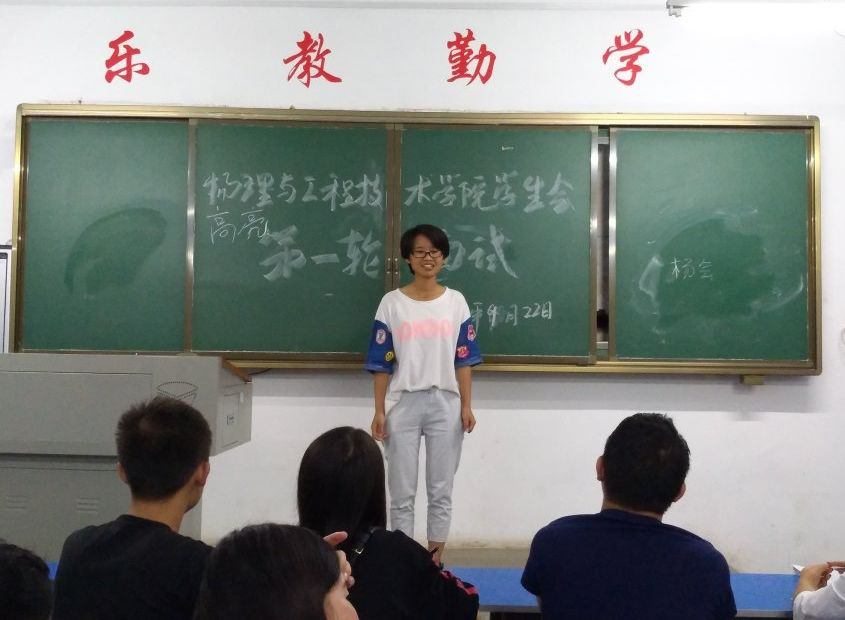 乐教勤学
物理与工程技术学院学生会
高亮
第一轮 试
月22日
杨会